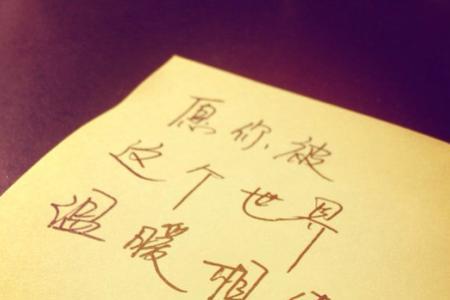 愿你被
这个世界
温暖相